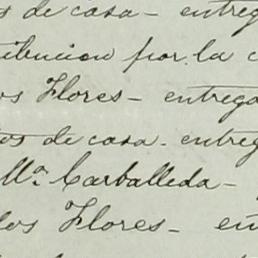 s de casa - entreg
tribucion por la c
os Flores - entrega
tos de casa - entreg
Mª Carballeda -
los Flores - en